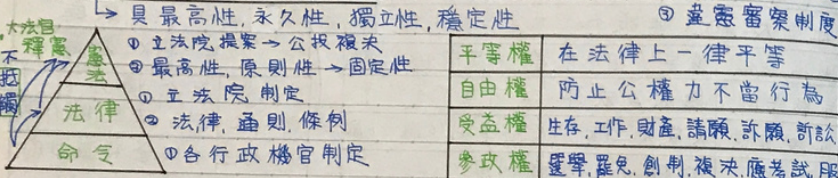 具最高性, 永久性, 獨立性, 穩定性
③ 違憲審察制度
大法官
釋憲
不抵觸
憲法
① 立法院提案→公投複決
② 最高性, 原則性→固定性
法律
① 立法院制定
② 法律, 通則, 條例
命令
① 各行政機官制定
平等權 在法律上一律平等
自由權 防止公權力不當行為
受益權 生存, 工作, 財產, 請願, 訴願, 訴訟
參政權 選舉, 罷免, 創制, 複決, 應考試,